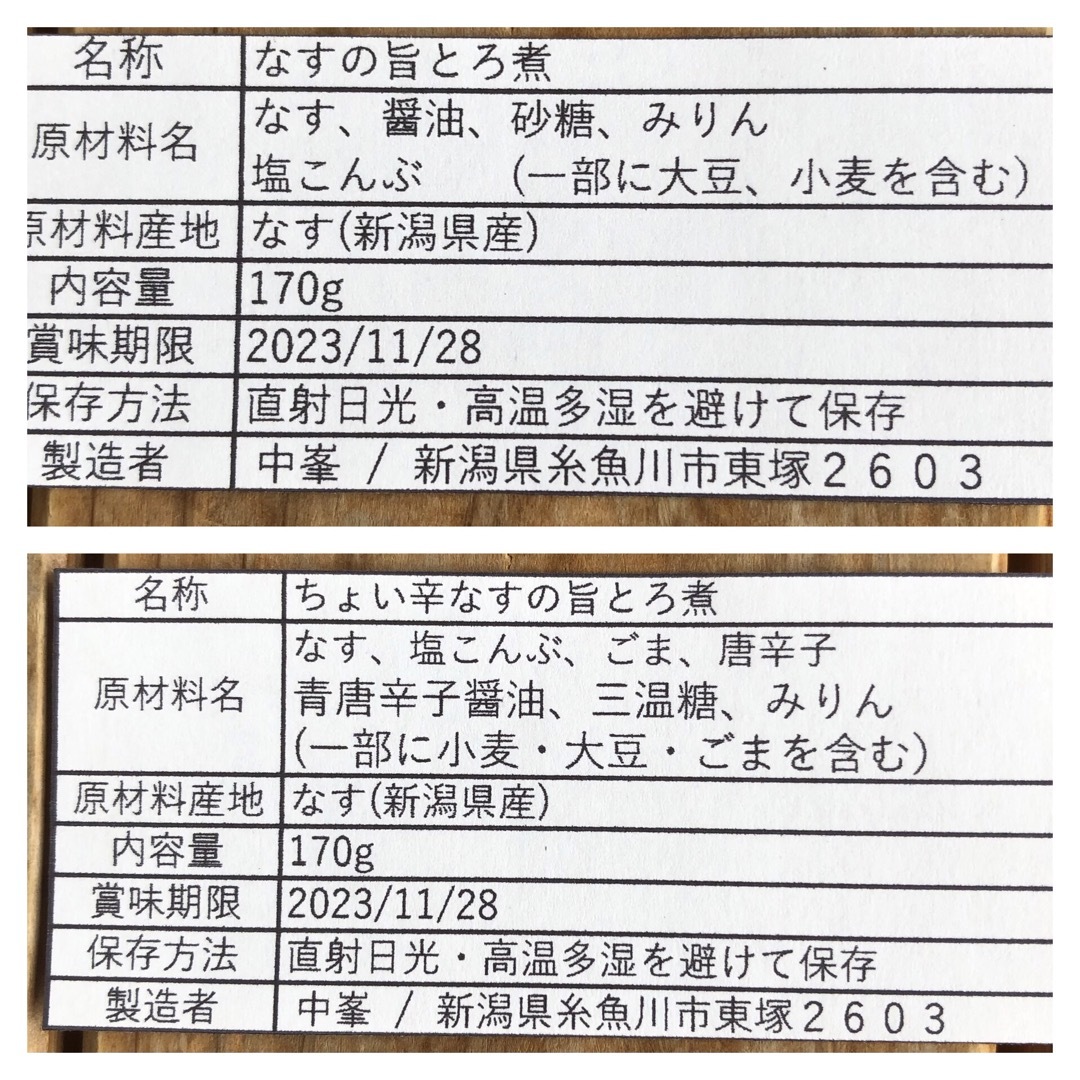 名称 なすの旨とろ煮
原材料名 なす、醤油、砂糖、みりん
塩こんぶ (一部に大豆、小麦を含む)
原材料産地 なす(新潟県産)
内容量 170g
賞味期限 2023/11/28
保存方法 直射日光・高温多湿を避けて保存
製造者 中峯 / 新潟県糸魚川市東塚2603
名称 ちょい辛なすの旨とろ煮
原材料名 なす、塩こんぶ、ごま、唐辛子
青唐辛子醤油、三温糖、みりん
(一部に小麦・大豆・ごまを含む)
原材料産地 なす(新潟県産)
内容量 170g
賞味期限 2023/11/28
保存方法 直射日光・高温多湿を避けて保存
製造者 中峯 / 新潟県糸魚川市東塚2603